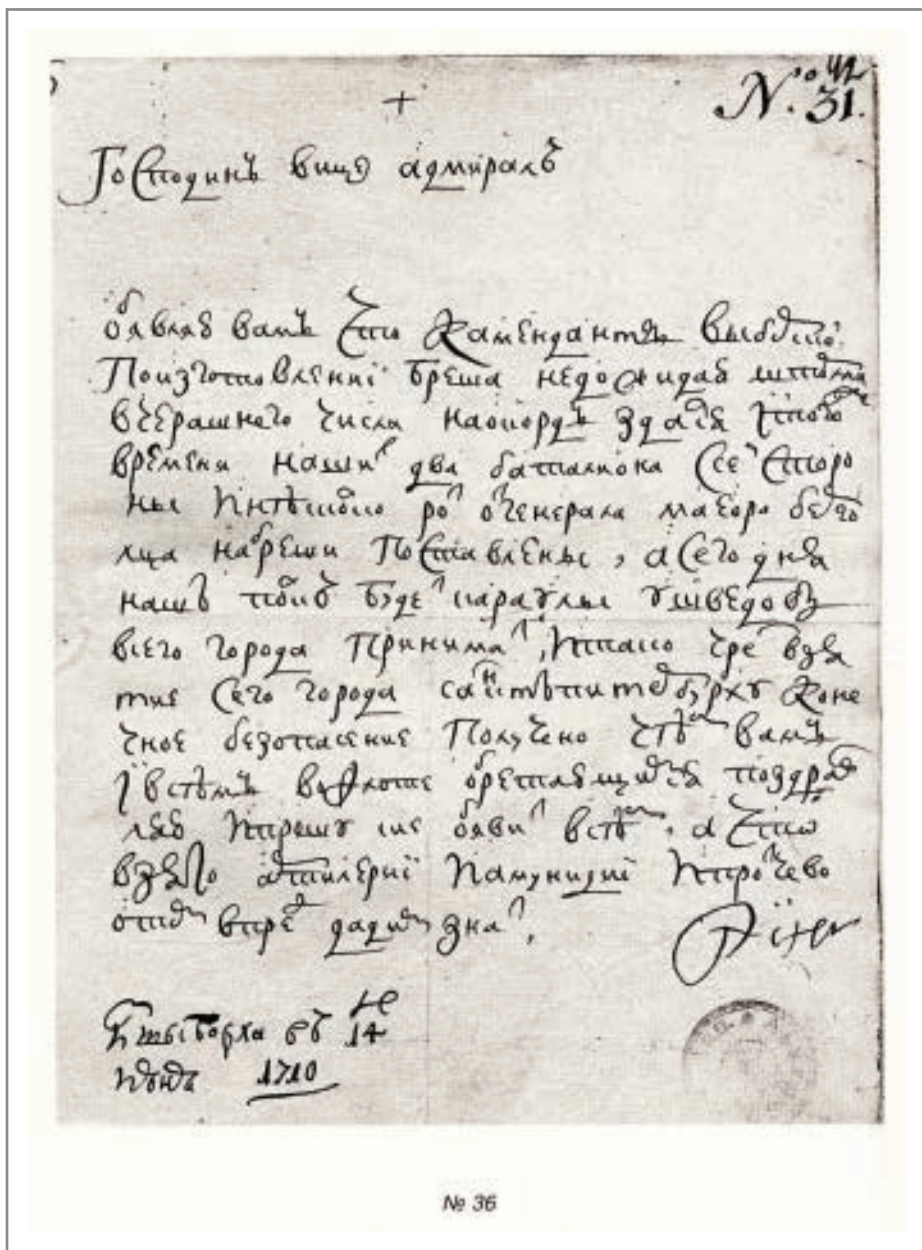 № 42
31.
+
Господинъ вице адмиралъ
объявляю вамъ что камендантъ выборской
по изготовлениї бреша недожидая штюрма
вчерашнего числа на окордъ здался ї того
времени нашихъ два баталиона с сей сторо
ны
генерала маеора
на бреши поставлены, а сего дня
нашъ полкъ буде караулы у шведовъ
всего города принима, и тако чрез взя
тие сего города санктъпитербурху коне
чное безопасение получено чемъ вамъ
ї всемъ во флоте обретающимся поздрав
ляю и прошу сие обяви всемъ, а что
взято артилерїї и амуницїї и прочево
о том впредь дадим зна,
Piter
Из Выборха въ 14
де июня 1710
№ 36